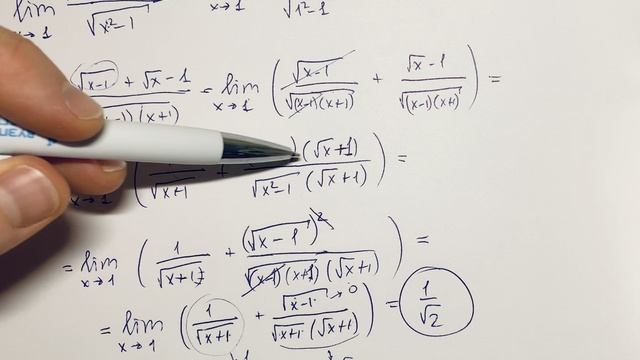 lim / √(x²-1) x→1 √(1²-1)
(√(x-1) + √x - 1) / (x+1) = lim x→1 ( √(x-1) / √((x-1)(x+1)) + (√x - 1) / √((x-1)(x+1)) ) =
x→1 ( / √(x+1) + (√x + 1) / (√(x²-1) (√x + 1)) ) =
= lim x→1 ( 1 / √(x+1) + (√(x-1))² / (√((x-1)(x+1)) (√x + 1)) ) =
= lim x→1 ( 1 / √(x+1) + √(x-1) → 0 / (√(x+1) (√x + 1)) ) = 1/√2